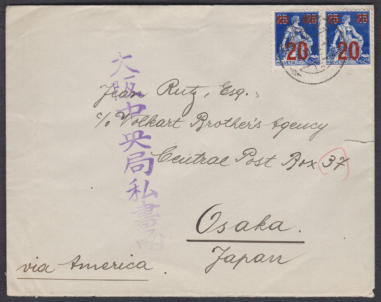 25 25
20 20
大阪中央局私書函
Jean Rutz, Esq.,
c/o Volkart Brother's Agency
Central Post Box 37
Osaka.
Japan
via America.